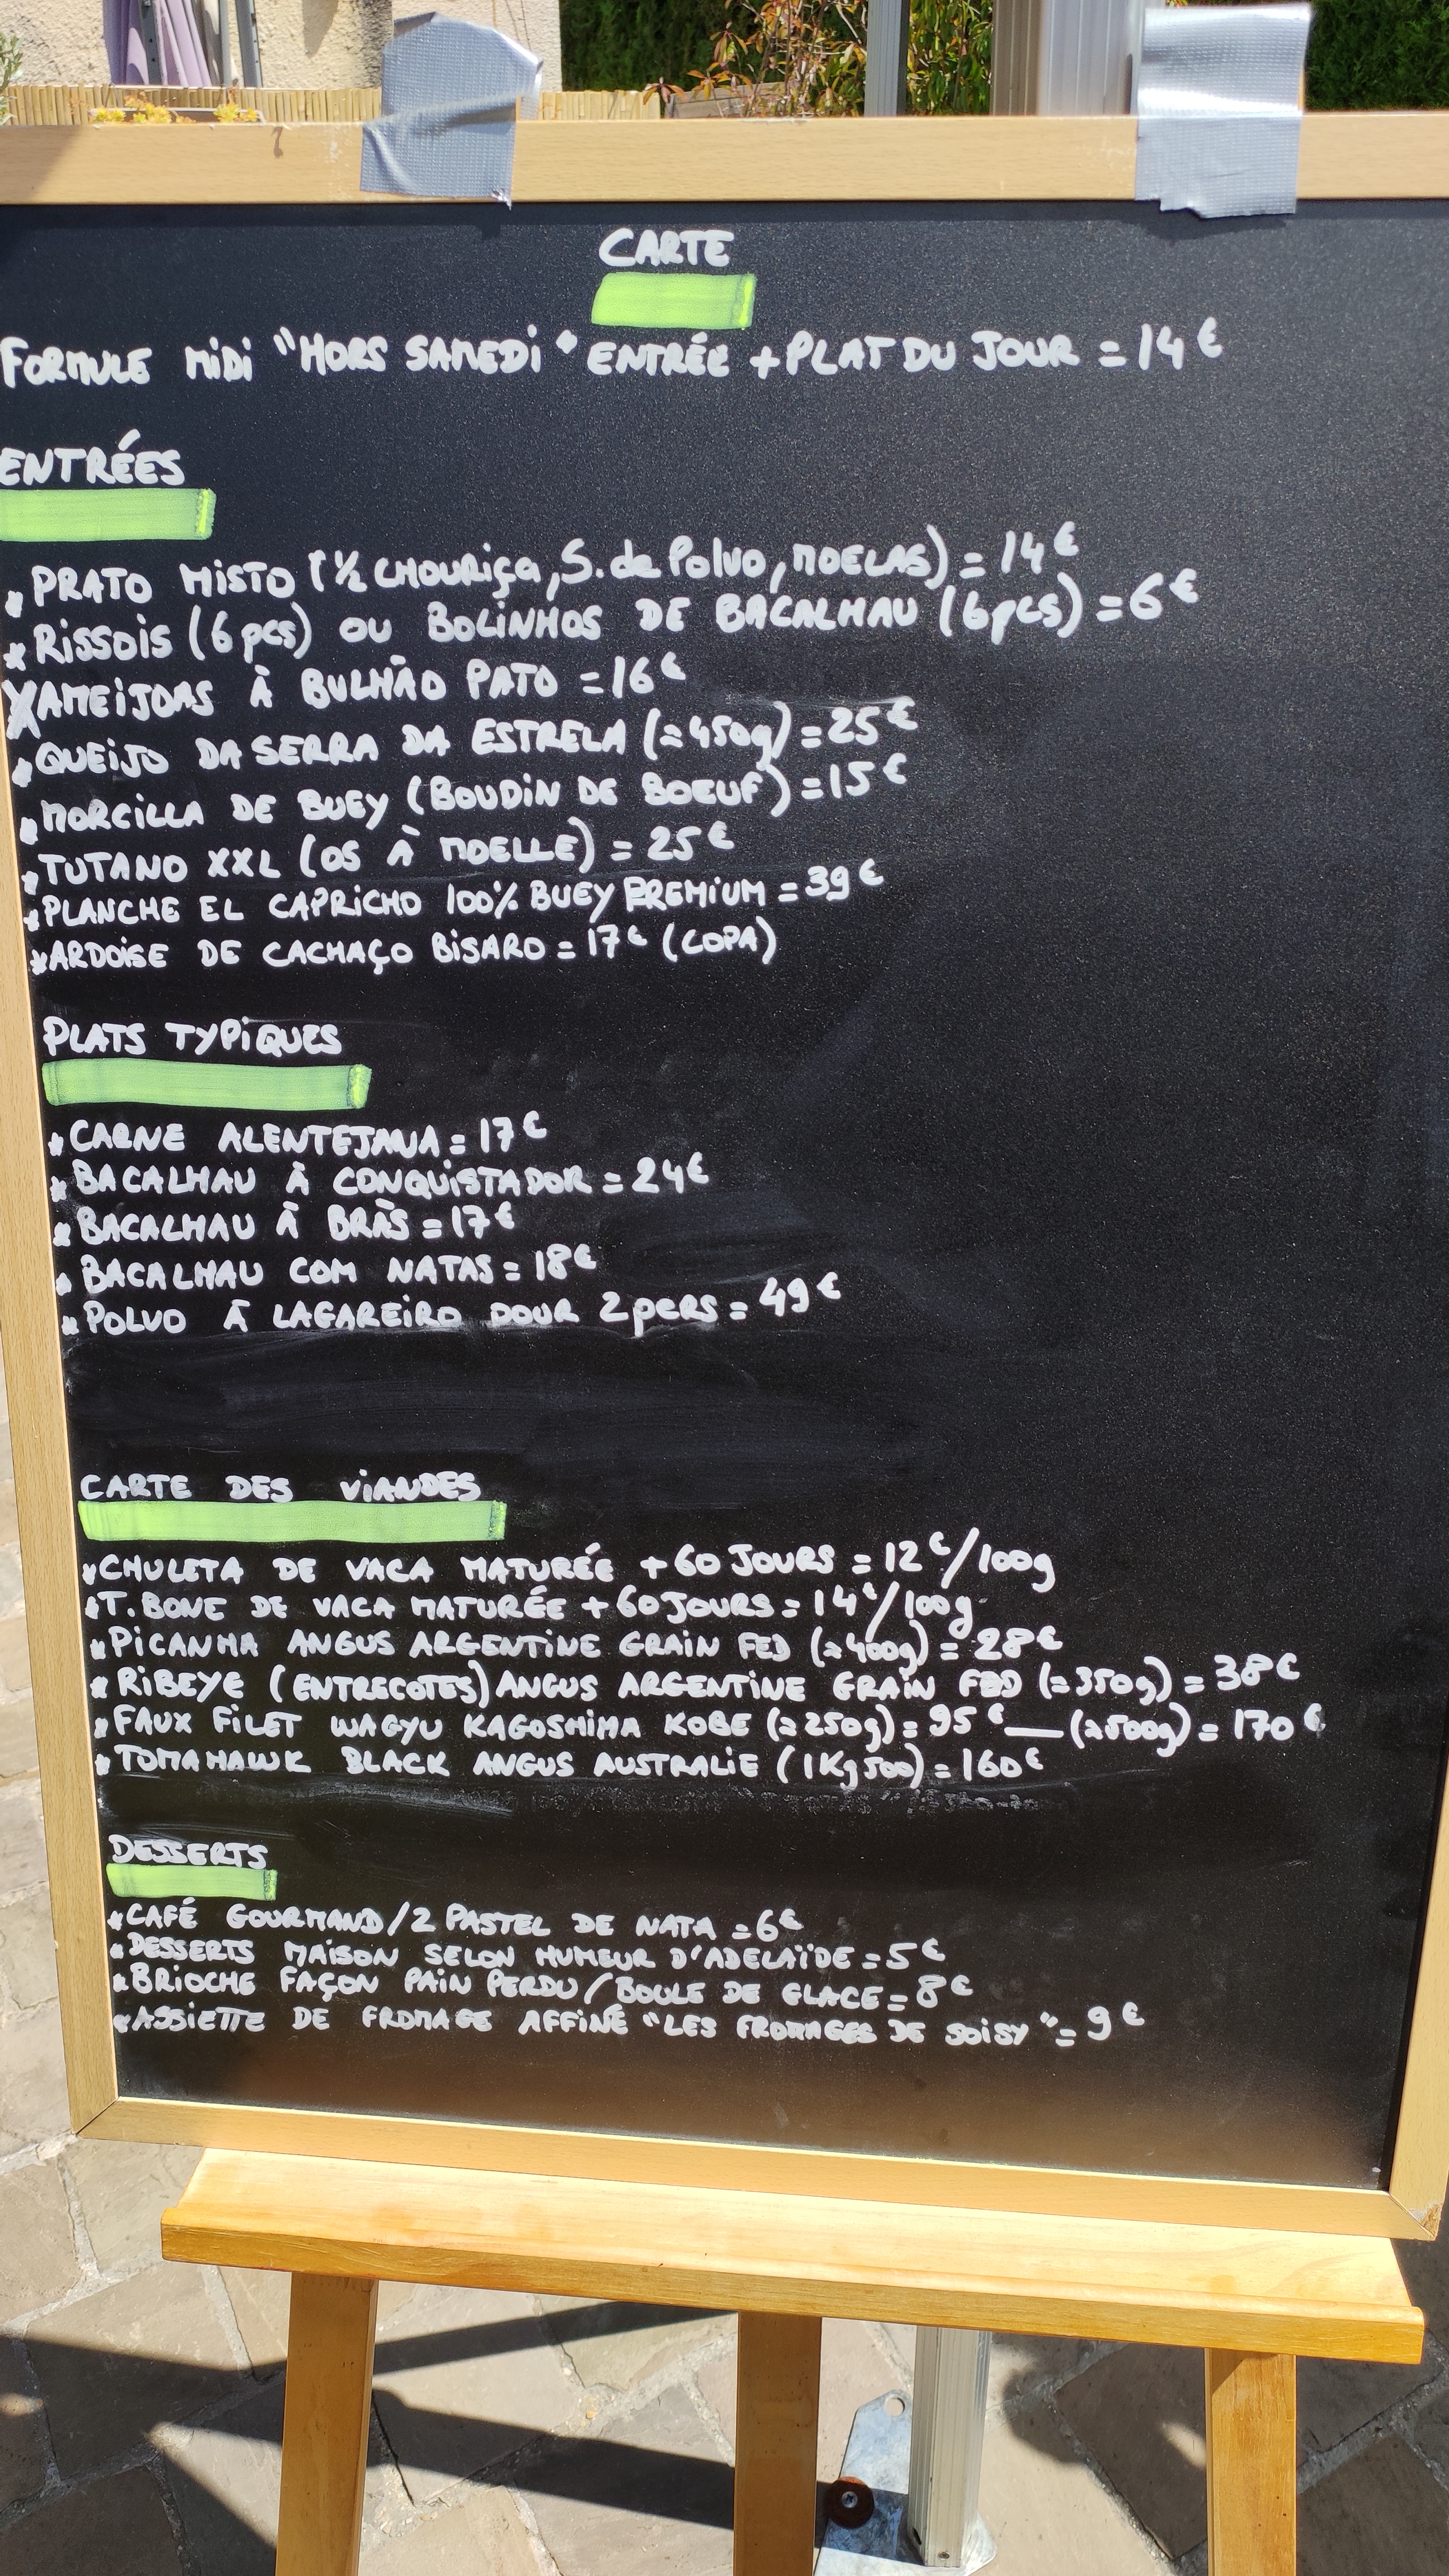 CARTE
FORMULE MIDI "HORS SAMEDI" ENTRÉE + PLAT DU JOUR = 14€
ENTRÉES
* PRATO MISTO (1/2 CHOURIÇA, S. de POLVO, MOELAS) = 14€
* RISSOIS (6 pcs) OU BOLINHOS DE BACALHAU (6 pcs) = 6€
X AMEIJOAS À BULHÃO PATO = 16€
* QUEIJO DA SERRA DA ESTRELA (≈450g) = 25€
* MORCILLA DE BUEY (BOUDIN DE BOEUF) = 15€
* TUTANO XXL (OS À MOELLE) = 25€
* PLANCHE EL CAPRICHO 100% BUEY PREMIUM = 39€
* ARDOISE DE CACHAÇO BISARO = 17€ (COPA)
PLATS TYPIQUES
* CARNE ALENTEJANA = 17€
* BACALHAU À CONQUISTADOR = 24€
* BACALHAU À BRÀS = 17€
* BACALHAU COM NATAS = 18€
* POLVO À LAGAREIRO POUR 2 PERS = 49€
CARTE DES VIANDES
* CHULETA DE VACA MATURÉE + 60 JOURS = 12€/100g
* T.BONE DE VACA MATURÉE + 60 JOURS = 14€/100g
* PICANHA ANGUS ARGENTINE GRAIN FED (≈400g) = 28€
* RIBEYE (ENTRECOTES) ANGUS ARGENTINE GRAIN FED (≈350g) = 38€
* FAUX FILET WAGYU KAGOSHIMA KOBE (≈250g) = 95€ — (≈500g) = 170€
* TOMAHAWK BLACK ANGUS AUSTRALIE (1Kg500) = 160€
DESSERTS
* CAFÉ GOURMAND / 2 PASTEL DE NATA = 6€
* DESSERTS MAISON SELON HUMEUR D'ADELAÏDE = 5€
* BRIOCHE FAÇON PAIN PERDU / BOULE DE GLACE = 8€
* ASSIETTE DE FROMAGE AFFINÉ "LES FROMAGES DE SOISY" = 9€